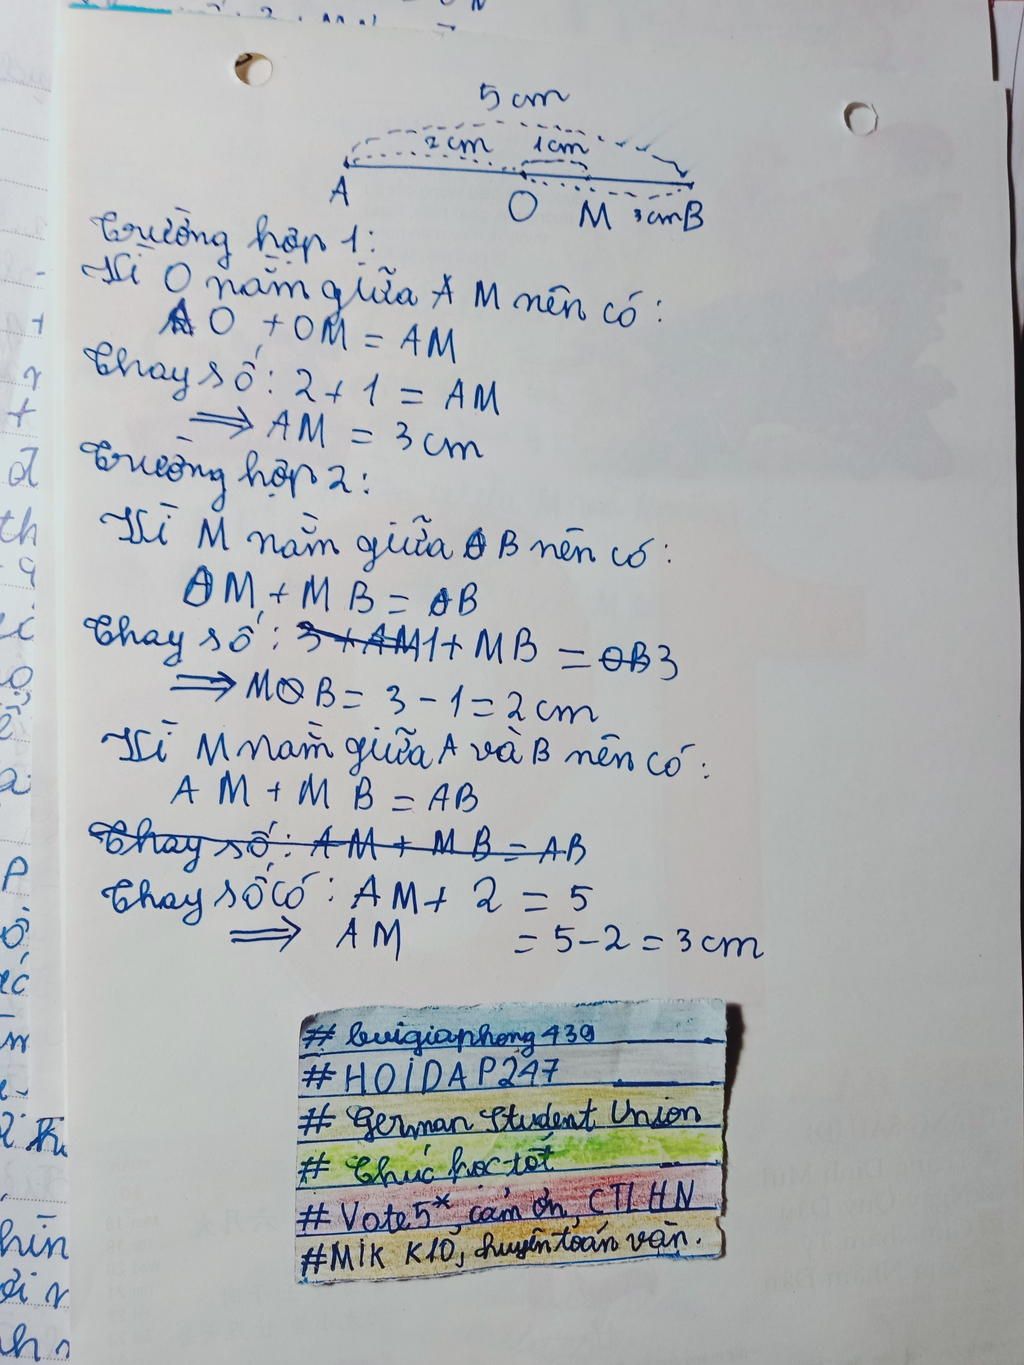 5 cm
2 cm 1cm
A O M 3cm B
Trường hợp 1:
Vì O nằm giữa A M nên có:
AO + OM = AM
Thay số: 2 + 1 = AM
⟹ AM = 3 cm
Trường hợp 2:
Vì M nằm giữa OB nên có:
OM + MB = OB
Thay số: 3 + AM 1 + MB = OB 3
⟹ MOB = 3 - 1 = 2 cm
Vì M nằm giữa A và B nên có:
AM + MB = AB
Thay số: AM + MB = AB
Thay số có: AM + 2 = 5
⟹ AM = 5 - 2 = 3 cm
# buigiaphong439
# HOIDAP247
# German Student Union
# Chúc học tốt
# Vote 5*, cảm ơn, CTLHN
# MIK K10, chuyên toán văn.